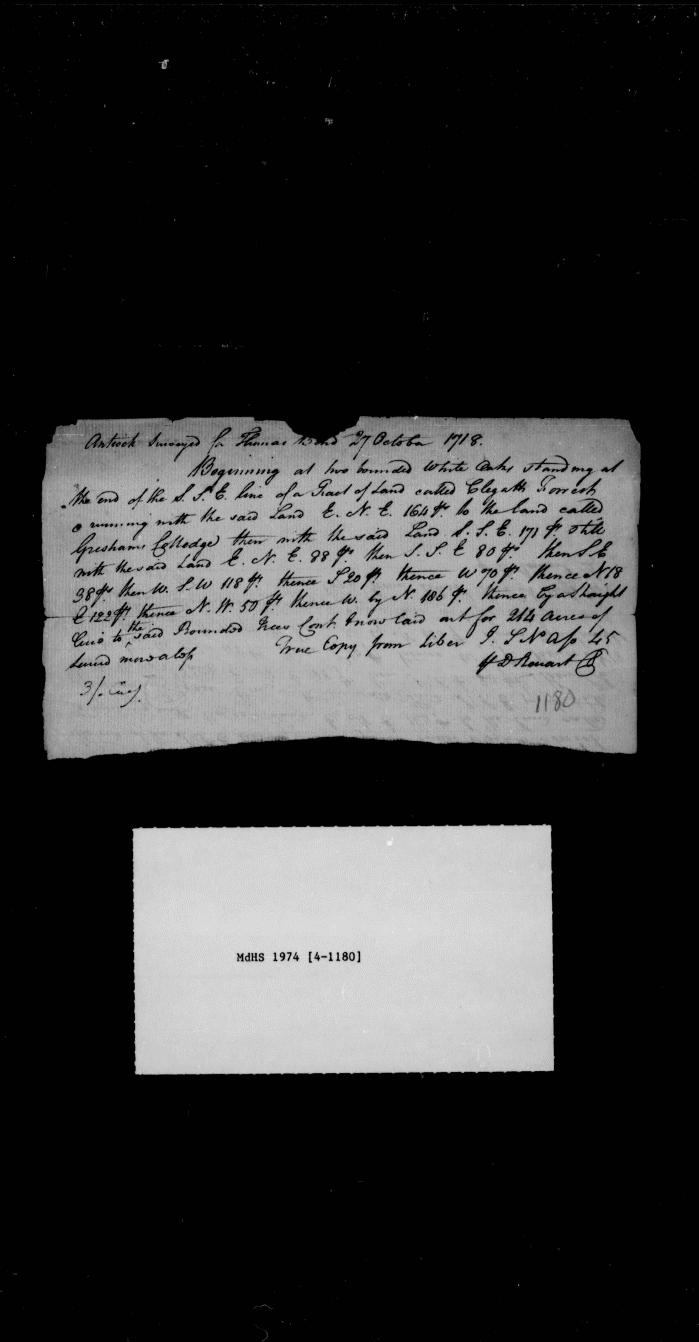 Antioch Surveyed for Thomas Bond 27 October 1718.
Beginning at two bounded White Oaks standing at
the end of the S. S. E. line of a Tract of Land called Clegatts Forrest
& running with the said Land E. N. E. 164 ps. to the land called
Greshams Colledge then with the said Land S. S. E. 171 ps. still
with the said Land E. N. E. 88 ps. then S. S. E 80 ps. then S E
38 ps. then W. S. W 118 ps. thence S 20 ps. thence W 70 ps. thence N 18
E 122 ps. thence N. W. 50 ps. thence W. by N. 186 ps. thence by a straight
line to the said Bounded trees Cont. & now laid out for 214 acres of
Land more or less True Copy from Liber I. L No A fo 45
D Steuart
3/. Curcy.
1180
MdHS 1974 [4-1180]